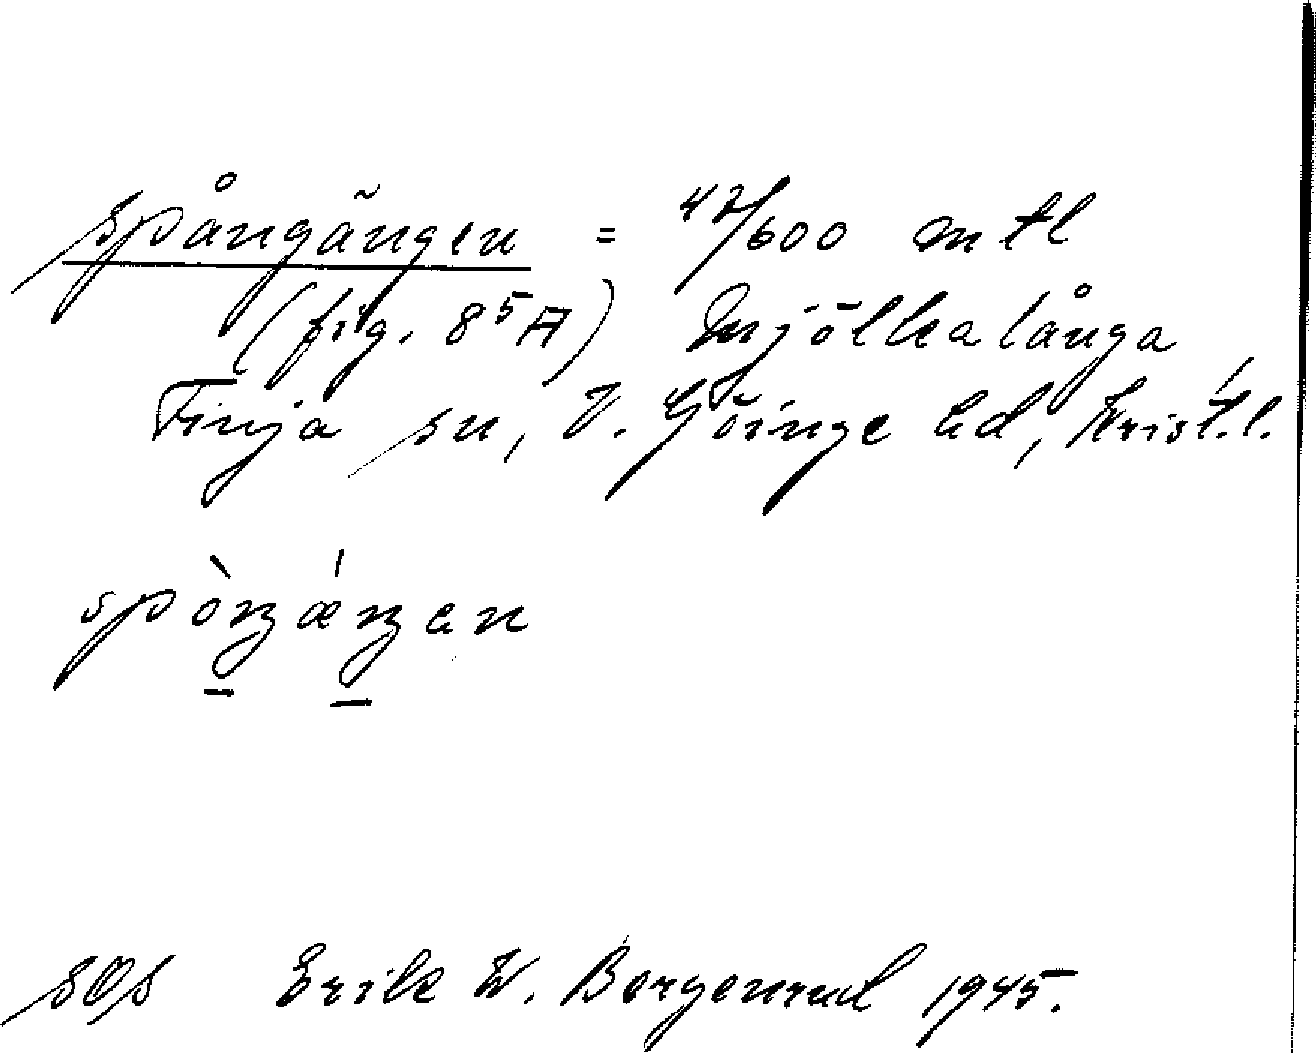 Spångängen = 42/600 mtl
(fig. 8⁵A) Mjölkalånga,
Finja sn, V. Göinge hd, Krist. l.
spòŋǽŋen
SOS Erik W. Borgenrud 1945.